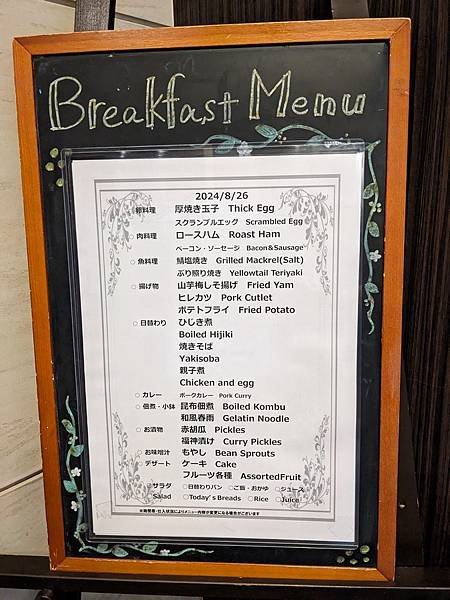 Breakfast Menu
2024/8/26
卵料理 厚焼き玉子 Thick Egg
スクランブルエッグ Scrambled Egg
○肉料理 ロースハム Roast Ham
ベーコン・ソーセージ Bacon&Sausage
○魚料理 鯖塩焼き Grilled Mackrel(Salt)
ぶり照り焼き Yellowtail Teriyaki
○揚げ物 山芋梅しそ揚げ Fried Yam
ヒレカツ Pork Cutlet
ポテトフライ Fried Potato
○日替わり ひじき煮
Boiled Hijiki
焼きそば
Yakisoba
親子煮
Chicken and egg
○カレー ポークカレー Pork Curry
○佃煮・小鉢 昆布佃煮 Boiled Kombu
和風春雨 Gelatin Noodle
○お漬物 赤胡瓜 Pickles
福神漬け Curry Pickles
○お味噌汁 もやし Bean Sprouts
○デザート ケーキ Cake
フルーツ各種 AssortedFruit
○サラダ ○日替わりパン ○ご飯・おかゆ ○ジュース
Salad ○Today's Breads ○Rice ○Juice
※時間帯・仕入状況によりメニュー内容が変更になる場合がございます